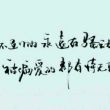 不
的永远在骚动
被偏爱的都有恃无恐